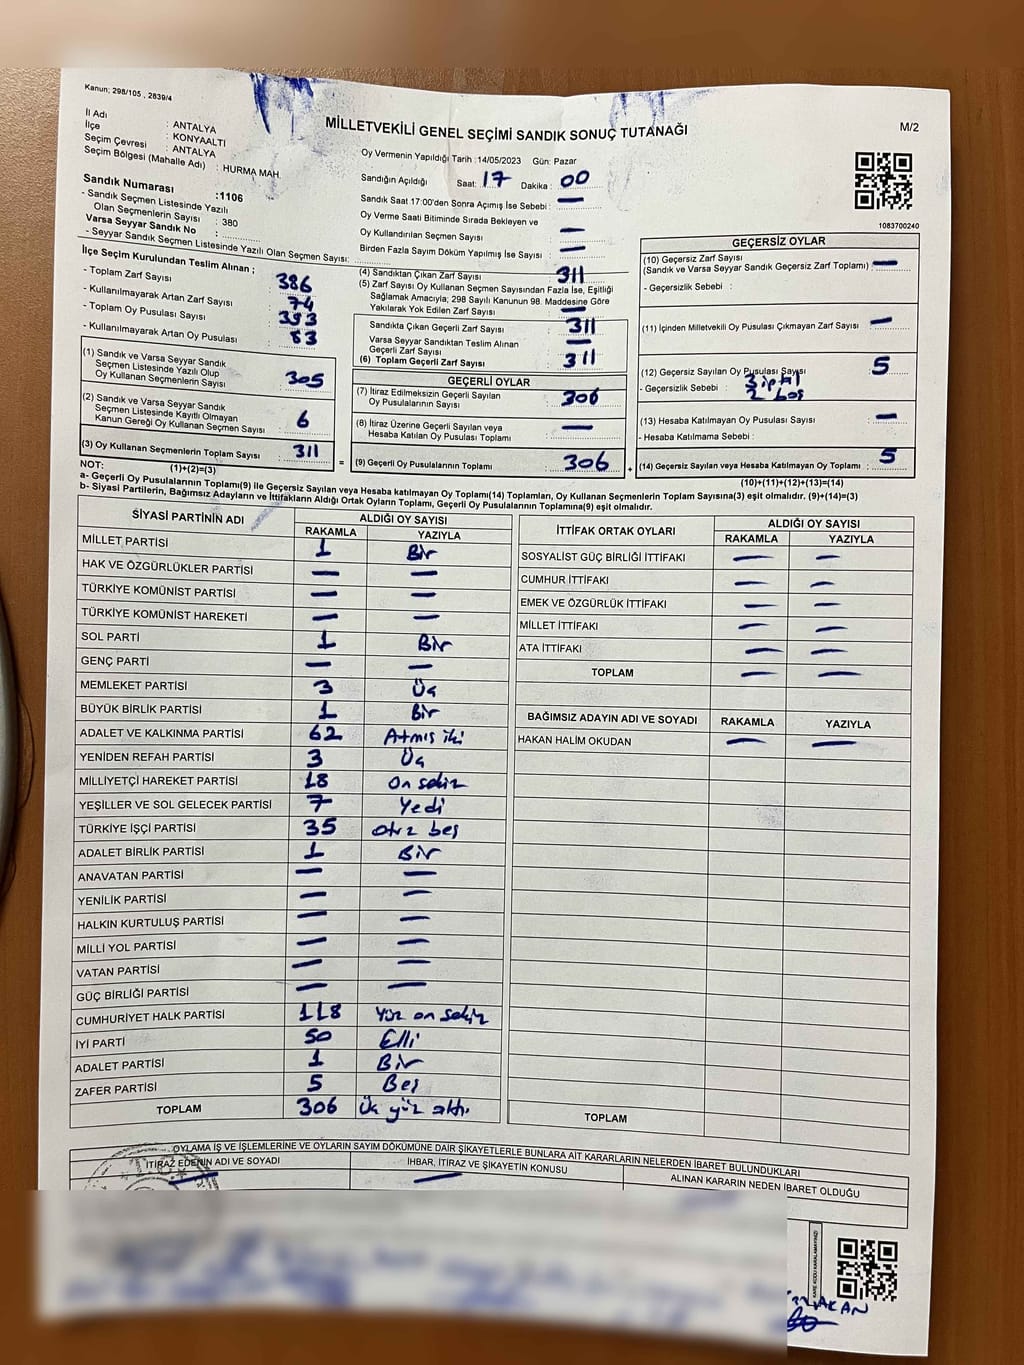 Kanun; 298/105 , 2839/4
MİLLETVEKİLİ GENEL SEÇİMİ SANDIK SONUÇ TUTANAĞI
M/2
İl Adı : ANTALYA
İlçe : KONYAALTI
Seçim Çevresi : ANTALYA
Seçim Bölgesi (Mahalle Adı) : HURMA MAH.
Sandık Numarası :1106
- Sandık Seçmen Listesinde Yazılı
Olan Seçmenlerin Sayısı : 380
Varsa Seyyar Sandık No :
- Seyyar Sandık Seçmen Listesinde Yazılı Olan Seçmen Sayısı:
Oy Vermenin Yapıldığı Tarih :14/05/2023 Gün: Pazar
Sandığın Açıldığı Saat: 17 Dakika : 00
Sandık Saat 17:00'den Sonra Açımış İse Sebebi : —
Oy Verme Saati Bitiminde Sırada Bekleyen ve
Oy Kullandırılan Seçmen Sayısı : —
Birden Fazla Sayım Döküm Yapılmış İse Sayısı : —
1083700240
İlçe Seçim Kurulundan Teslim Alınan ;
- Toplam Zarf Sayısı : 386
- Kullanılmayarak Artan Zarf Sayısı : 74
- Toplam Oy Pusulası Sayısı : 393
- Kullanılmayarak Artan Oy Pusulası : 83
(1) Sandık ve Varsa Seyyar Sandık
Seçmen Listesinde Yazılı Olup
Oy Kullanan Seçmenlerin Sayısı : 305
(2) Sandık ve Varsa Seyyar Sandık
Seçmen Listesinde Kayıtlı Olmayan
Kanun Gereği Oy Kullanan Seçmen Sayısı : 6
(3) Oy Kullanan Seçmenlerin Toplam Sayısı : 311
(1)+(2)=(3)
(4) Sandıktan Çıkan Zarf Sayısı : 311
(5) Zarf Sayısı Oy Kullanan Seçmen Sayısından Fazla İse, Eşitliği
Sağlamak Amacıyla; 298 Sayılı Kanunun 98. Maddesine Göre
Yakılarak Yok Edilen Zarf Sayısı : —
Sandıkta Çıkan Geçerli Zarf Sayısı : 311
Varsa Seyyar Sandıktan Teslim Alınan
Geçerli Zarf Sayısı : —
(6) Toplam Geçerli Zarf Sayısı : 311
GEÇERLİ OYLAR
(7) İtiraz Edilmeksizin Geçerli Sayılan
Oy Pusulalarının Sayısı : 306
(8) İtiraz Üzerine Geçerli Sayılan veya
Hesaba Katılan Oy Pusulası Toplamı : —
= (9) Geçerli Oy Pusulalarının Toplamı : 306 +
GEÇERSİZ OYLAR
(10) Geçersiz Zarf Sayısı
(Sandık ve Varsa Seyyar Sandık Geçersiz Zarf Toplamı) : —
- Geçersizlik Sebebi :
(11) İçinden Milletvekili Oy Pusulası Çıkmayan Zarf Sayısı : —
(12) Geçersiz Sayılan Oy Pusulası Sayısı : 5
- Geçersizlik Sebebi : 3 iptal
2 boş
(13) Hesaba Katılmayan Oy Pusulası Sayısı : —
- Hesaba Katılmama Sebebi :
(14) Geçersiz Sayılan veya Hesaba Katılmayan Oy Toplamı : 5
(10)+(11)+(12)+(13)=(14)
NOT:
a- Geçerli Oy Pusulalarının Toplamı(9) ile Geçersiz Sayılan veya Hesaba katılmayan Oy Toplamı(14) Toplamları, Oy Kullanan Seçmenlerin Toplam Sayısına(3) eşit olmalıdır. (9)+(14)=(3)
b- Siyasi Partilerin, Bağımsız Adayların ve İttifakların Aldığı Ortak Oyların Toplamı, Geçerli Oy Pusulalarının Toplamına(9) eşit olmalıdır.
SİYASİ PARTİNİN ADI ALDIĞI OY SAYISI
RAKAMLA YAZIYLA
MİLLET PARTİSİ 1 Bir
HAK VE ÖZGÜRLÜKLER PARTİSİ — —
TÜRKİYE KOMÜNİST PARTİSİ — —
TÜRKİYE KOMÜNİST HAREKETİ — —
SOL PARTİ 1 Bir
GENÇ PARTİ — —
MEMLEKET PARTİSİ 3 Üç
BÜYÜK BİRLİK PARTİSİ 1 Bir
ADALET VE KALKINMA PARTİSİ 62 Atmış iki
YENİDEN REFAH PARTİSİ 3 Üç
MİLLİYETÇİ HAREKET PARTİSİ 18 On sekiz
YEŞİLLER VE SOL GELECEK PARTİSİ 7 Yedi
TÜRKİYE İŞÇİ PARTİSİ 35 otuz beş
ADALET BİRLİK PARTİSİ 1 Bir
ANAVATAN PARTİSİ — —
YENİLİK PARTİSİ — —
HALKIN KURTULUŞ PARTİSİ — —
MİLLİ YOL PARTİSİ — —
VATAN PARTİSİ — —
GÜÇ BİRLİĞİ PARTİSİ — —
CUMHURİYET HALK PARTİSİ 118 Yüz on sekiz
İYİ PARTİ 50 Elli
ADALET PARTİSİ 1 Bir
ZAFER PARTİSİ 5 Beş
TOPLAM 306 Üç yüz altı
İTTİFAK ORTAK OYLARI ALDIĞI OY SAYISI
RAKAMLA YAZIYLA
SOSYALİST GÜÇ BİRLİĞİ İTTİFAKI — —
CUMHUR İTTİFAKI — —
EMEK VE ÖZGÜRLÜK İTTİFAKI — —
MİLLET İTTİFAKI — —
ATA İTTİFAKI — —
TOPLAM — —
BAĞIMSIZ ADAYIN ADI VE SOYADI RAKAMLA YAZIYLA
HAKAN HALİM OKUDAN — —
TOPLAM
OYLAMA İŞ VE İŞLEMLERİNE VE OYLARIN SAYIM DÖKÜMÜNE DAİR ŞİKAYETLERLE BUNLARA AİT KARARLARIN NELERDEN İBARET BULUNDUKLARI
İTİRAZ EDENİN ADI VE SOYADI İHBAR, İTİRAZ VE ŞİKAYETİN KONUSU ALINAN KARARIN NEDEN İBARET OLDUĞU
— —
KARE KODU KARALAMAYINIZ!